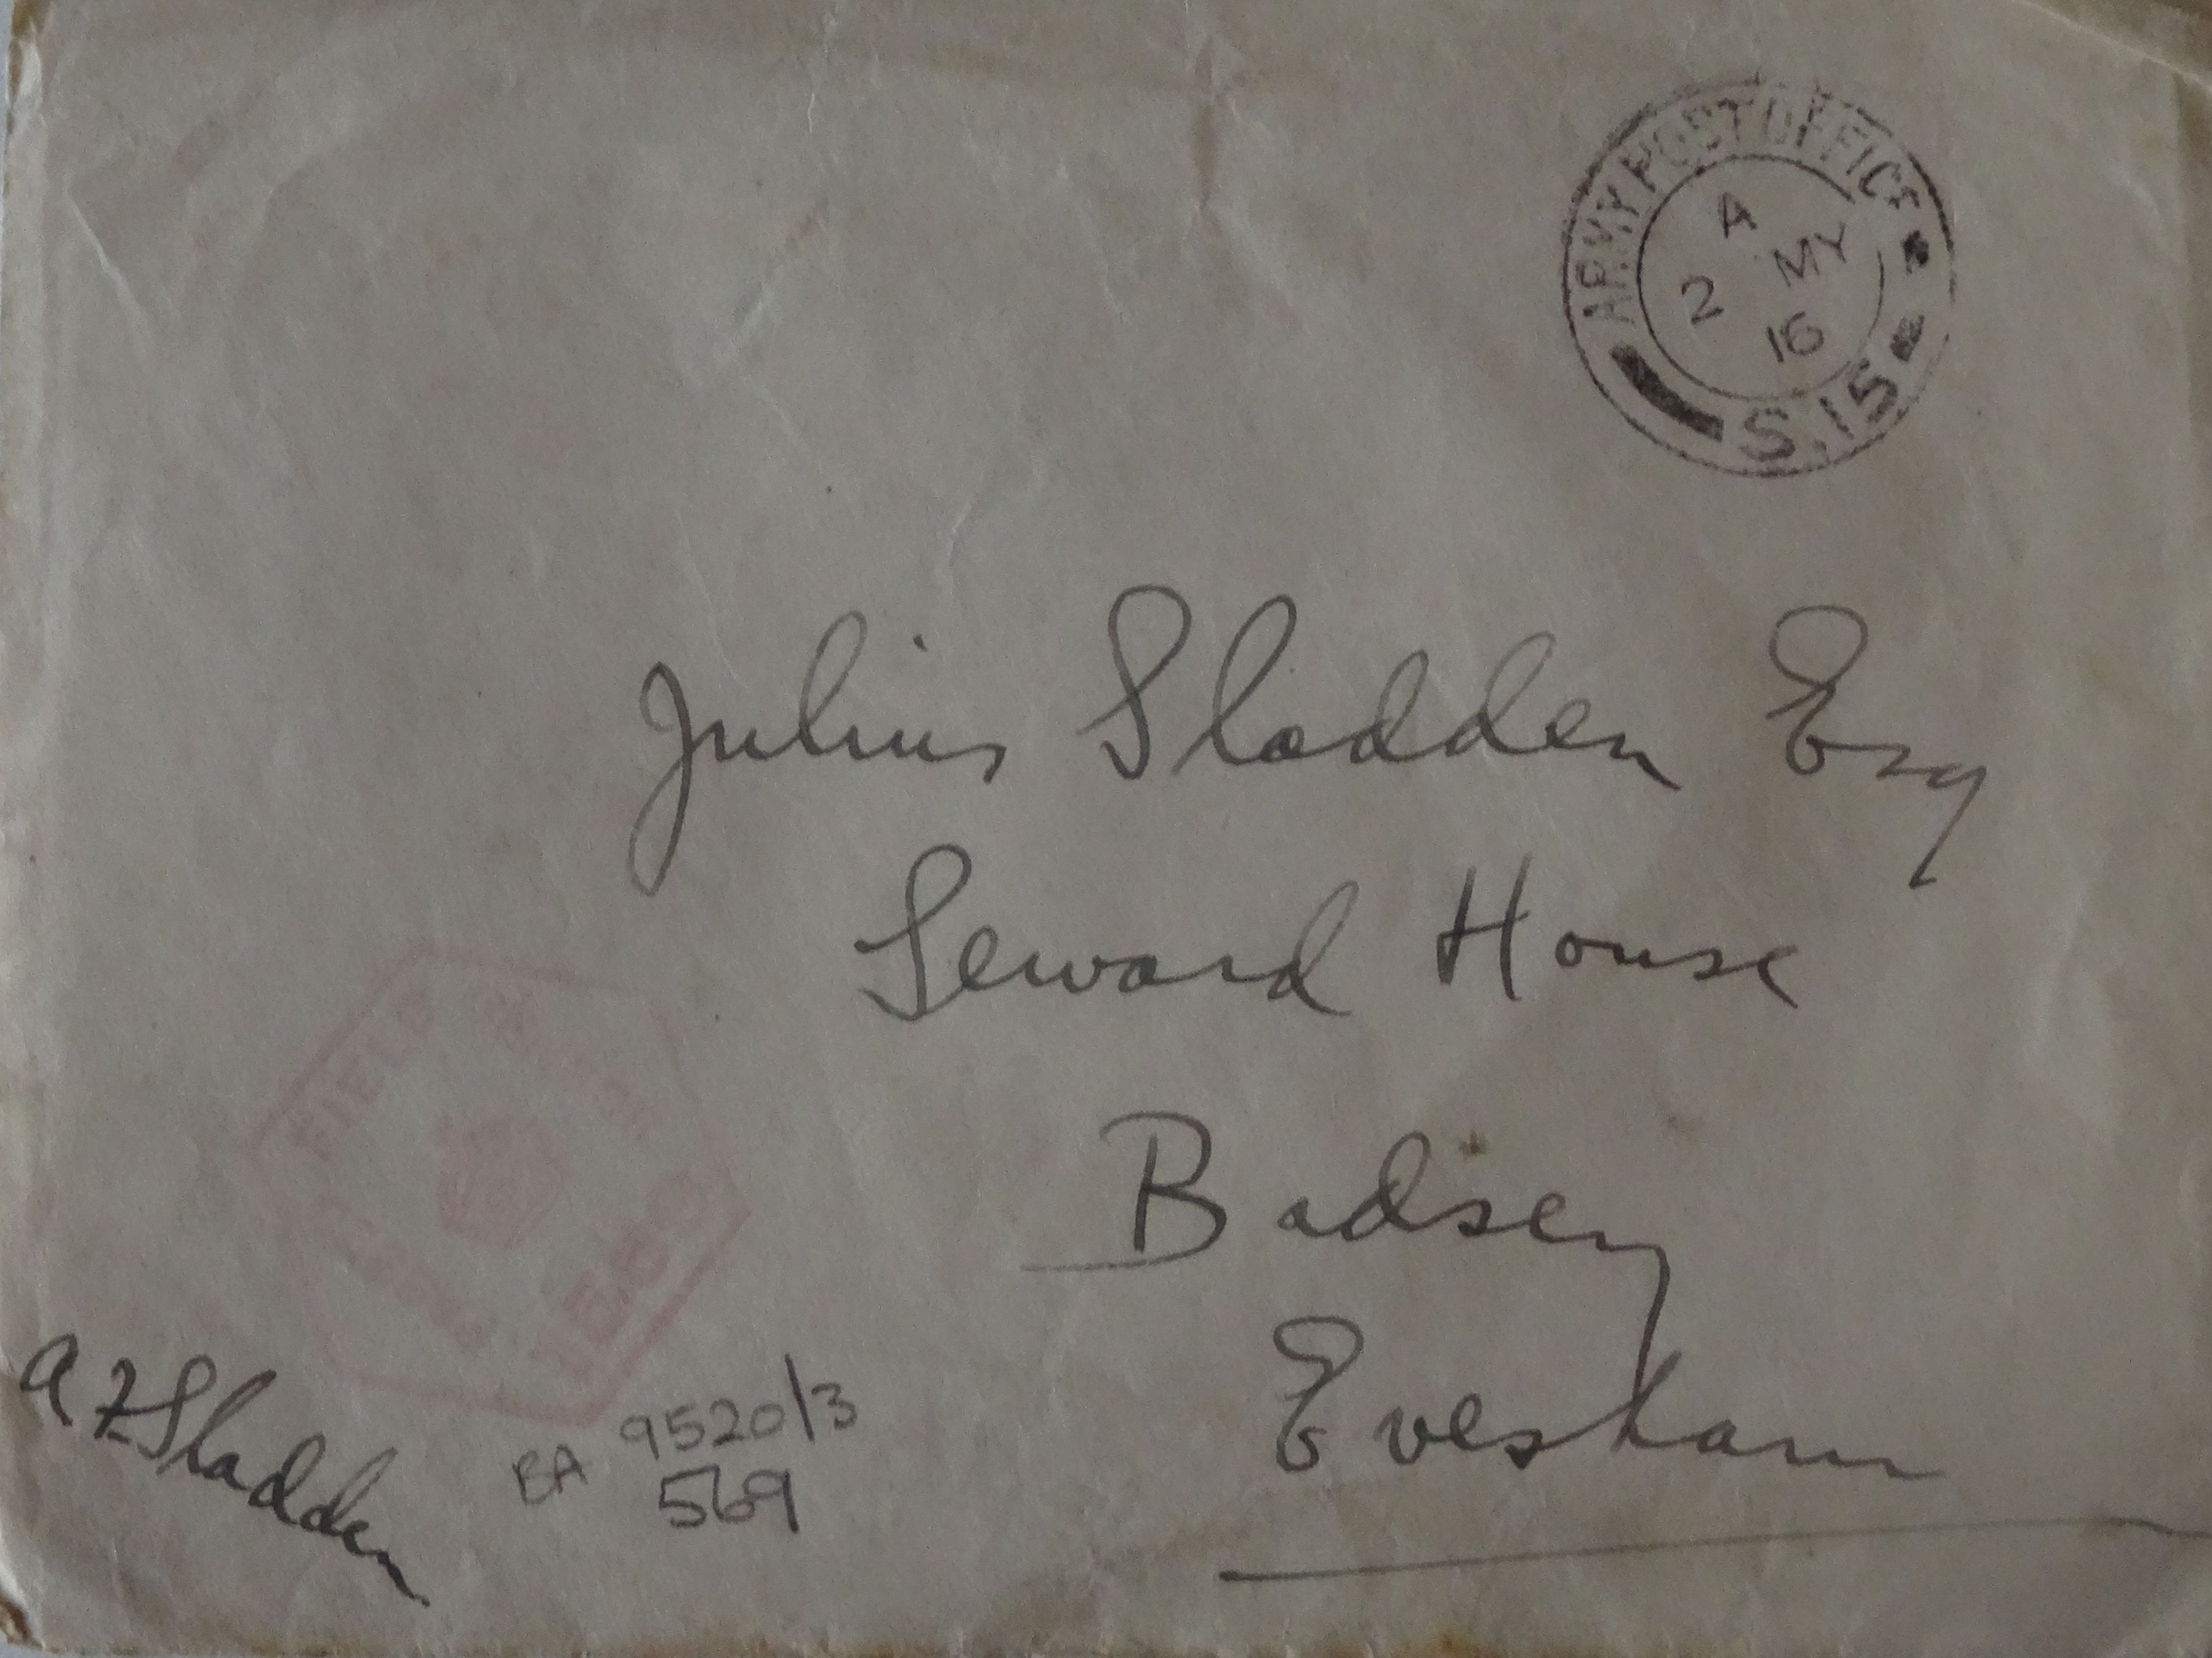 ARMY POST OFFICE
A
2 MY
16
S.15
Julius Sladden Esq
Seward House
Badsey
Evesham
FIELD
A F Sladden
BA 9520/3
569